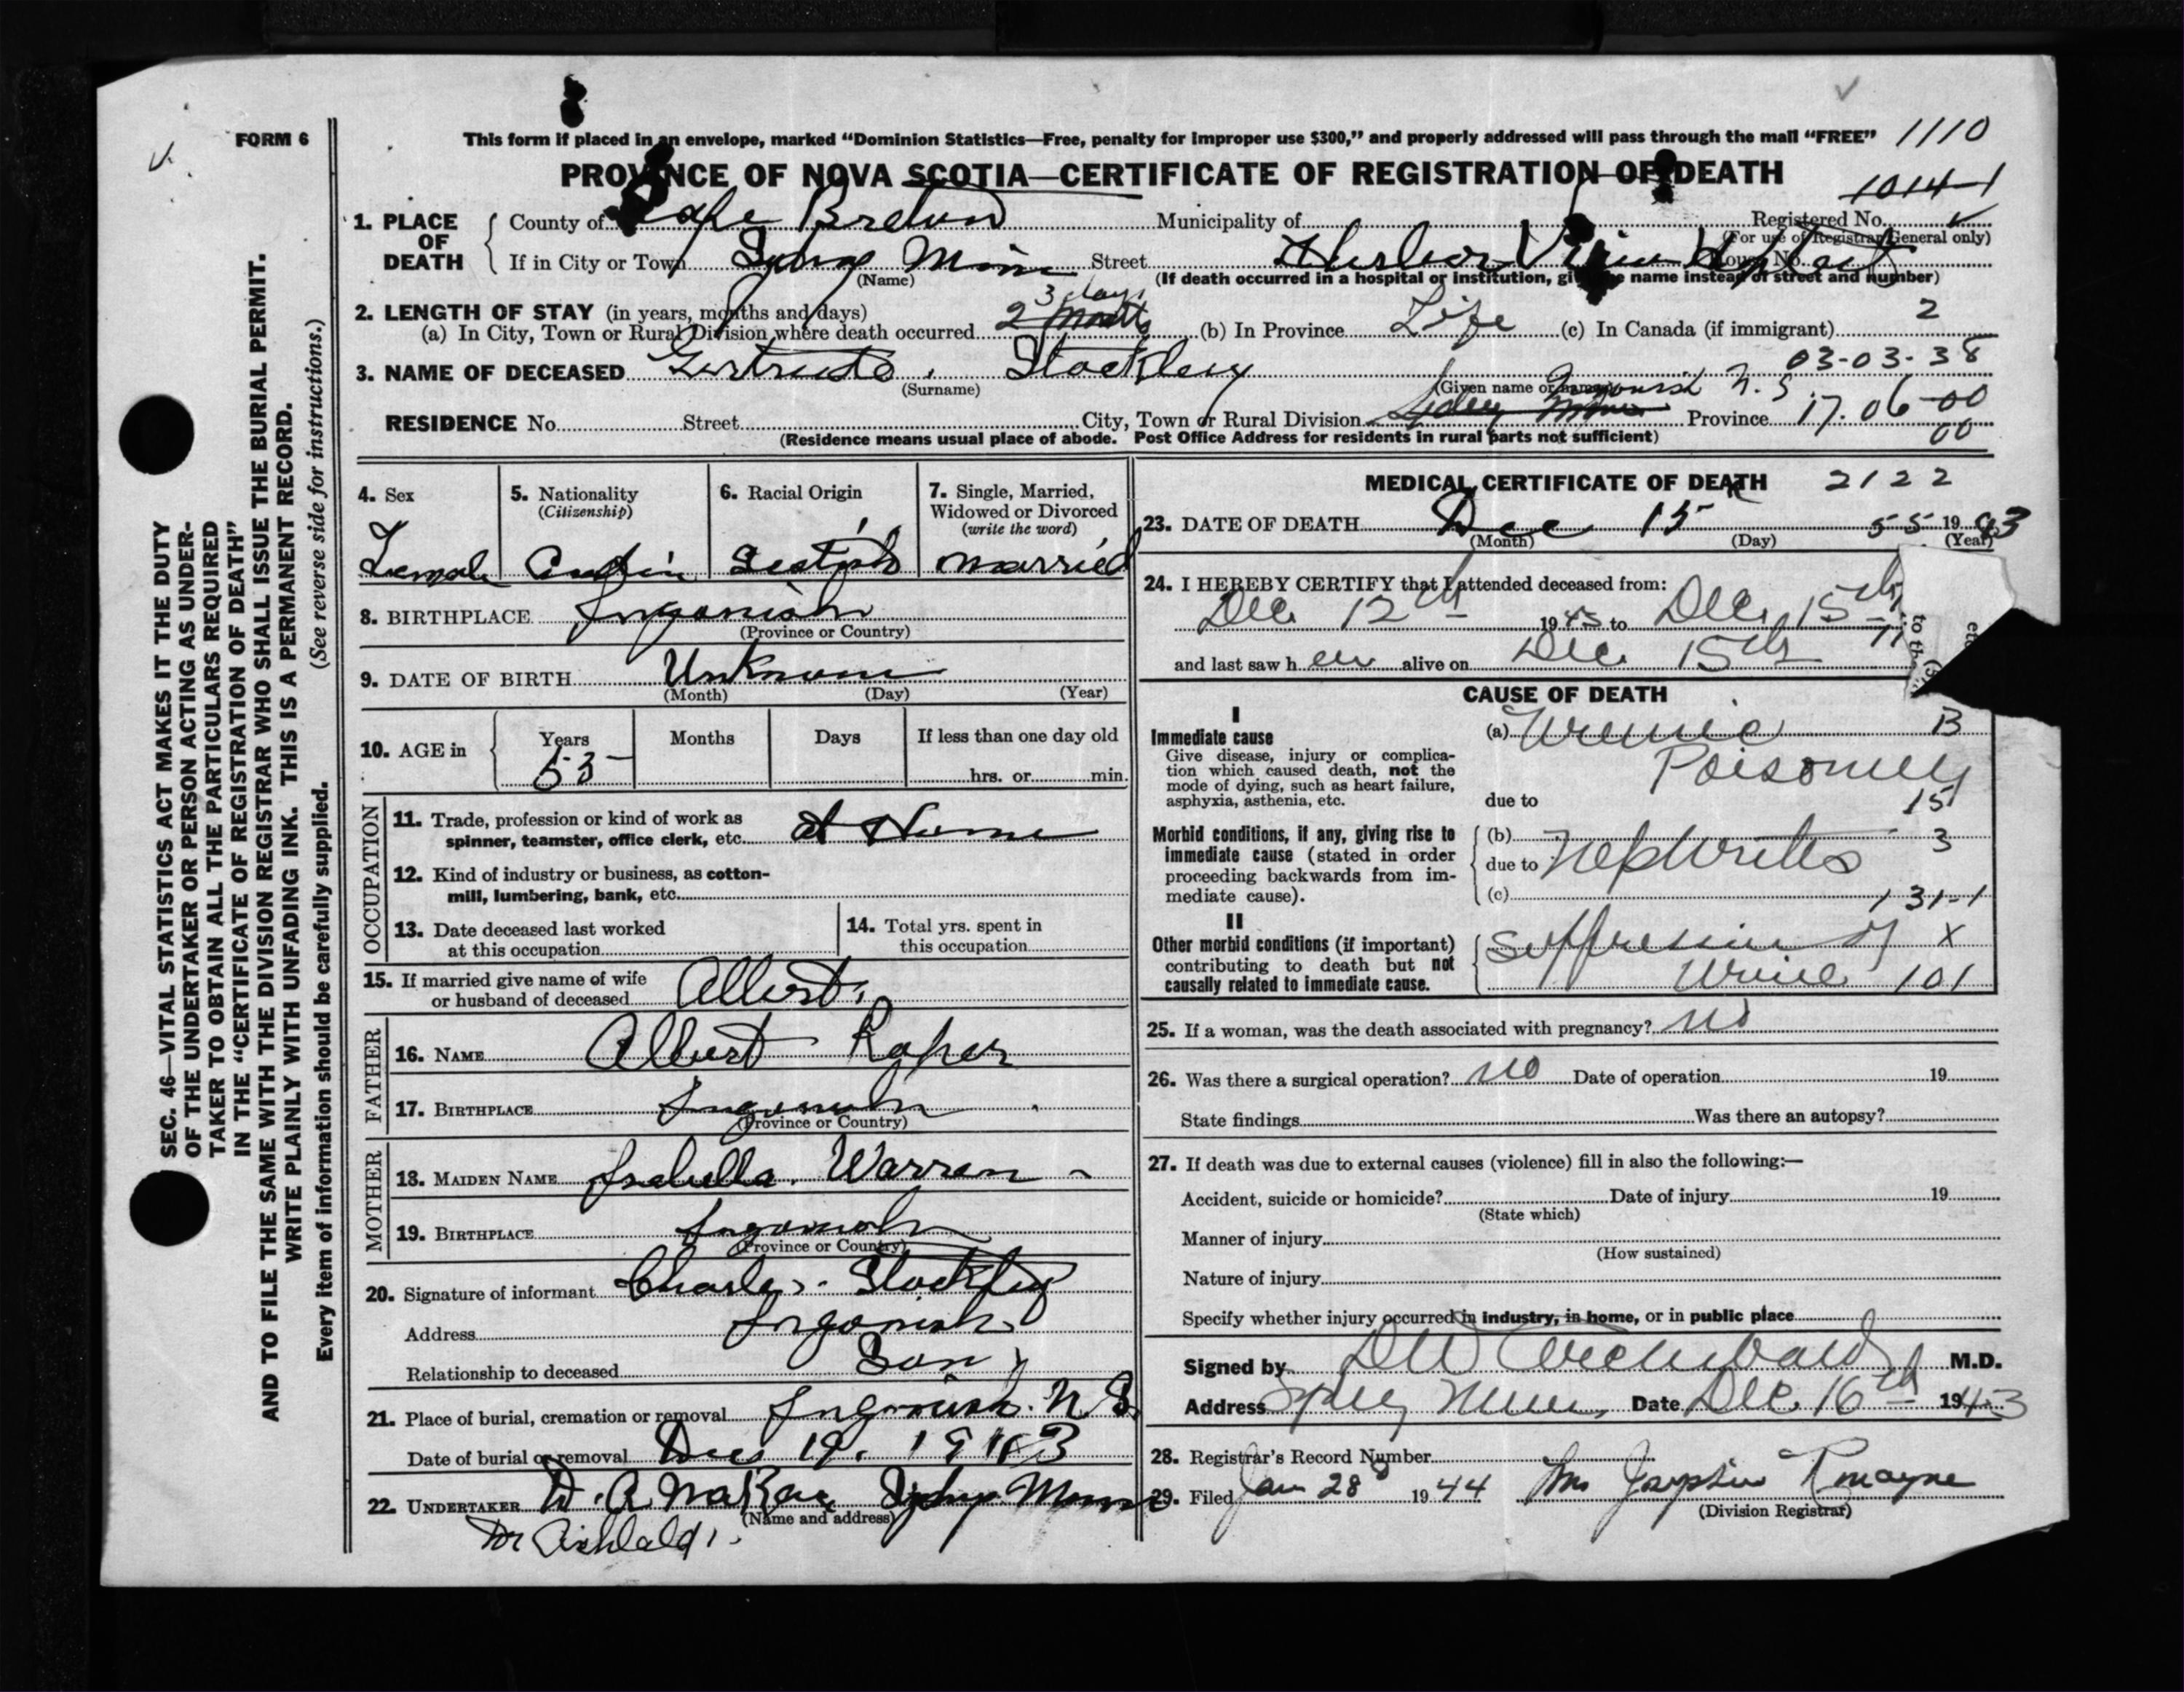 FORM 6
This form if placed in an envelope, marked “Dominion Statistics—Free, penalty for improper use $300,” and properly addressed will pass through the mail “FREE” 1110
PROVINCE OF NOVA SCOTIA—CERTIFICATE OF REGISTRATION OF DEATH
1014-1
1. PLACE OF DEATH
County of Cape Breton Municipality of Registered No.
(For use of Registrar General only)
If in City or Town Sydney Mines Street Harbor View Hospital House No.
(Name) (If death occurred in a hospital or institution, give name instead of street and number)
3 days
2. LENGTH OF STAY (in years, months and days)
(a) In City, Town or Rural Division where death occurred 2 Months (b) In Province Life (c) In Canada (if immigrant) 2
03-03-38
3. NAME OF DECEASED Gertrude Stockley
(Surname) (Given name or names)
Ingonish N.S.
RESIDENCE No. Street City, Town or Rural Division Sydney Mines Province 17.06-00
00
(Residence means usual place of abode. Post Office Address for residents in rural parts not sufficient)
4. Sex
Female
5. Nationality
(Citizenship)
6. Racial Origin
Scotish
7. Single, Married,
Widowed or Divorced
(write the word)
married
8. BIRTHPLACE Ingonish
(Province or Country)
9. DATE OF BIRTH Unknown
(Month) (Day) (Year)
10. AGE in
Years Months Days If less than one day old
53 hrs. or min.
OCCUPATION
11. Trade, profession or kind of work as
spinner, teamster, office clerk, etc. at Home
12. Kind of industry or business, as cotton-
mill, lumbering, bank, etc.
13. Date deceased last worked
at this occupation
14. Total yrs. spent in
this occupation
15. If married give name of wife
or husband of deceased Albert
FATHER
16. NAME Albert Roper
17. BIRTHPLACE Ingonish
(Province or Country)
MOTHER
18. MAIDEN NAME Isabella Warren
19. BIRTHPLACE Ingonish
(Province or Country)
20. Signature of informant Charles Stockley
Address Ingonish
Relationship to deceased Son
21. Place of burial, cremation or removal Ingonish N S
Date of burial or removal Dec 19. 1943
22. UNDERTAKER Sydney Mines
(Name and address)
Dr Archibald
MEDICAL CERTIFICATE OF DEATH 2122
23. DATE OF DEATH Dec 15 55 1943
(Month) (Day) (Year)
24. I HEREBY CERTIFY that I attended deceased from:
Dec. 12th 1943 to Dec. 15th
and last saw her alive on Dec. 15th
CAUSE OF DEATH
I
Immediate cause
Give disease, injury or complica-
tion which caused death, not the
mode of dying, such as heart failure,
asphyxia, asthenia, etc.
(a) Uremic B
Poisoning
due to 15
Morbid conditions, if any, giving rise to
immediate cause (stated in order
proceeding backwards from im-
mediate cause).
(b) 3
due to Nephritis
(c) 131-1
II
Other morbid conditions (if important)
contributing to death but not
causally related to immediate cause.
Suppression of X
Urine 101
25. If a woman, was the death associated with pregnancy? no
26. Was there a surgical operation? no Date of operation 19
State findings Was there an autopsy?
27. If death was due to external causes (violence) fill in also the following:—
Accident, suicide or homicide? Date of injury 19
(State which)
Manner of injury
(How sustained)
Nature of injury
Specify whether injury occurred in industry, in home, or in public place
Signed by D W Archibald M.D.
Address Sydney Mines Date Dec. 16th 1943
28. Registrar’s Record Number
29. Filed Jan 28 1944 Mrs
(Division Registrar)
SEC. 46—VITAL STATISTICS ACT MAKES IT THE DUTY
OF THE UNDERTAKER OR PERSON ACTING AS UNDER-
TAKER TO OBTAIN ALL THE PARTICULARS REQUIRED
IN THE “CERTIFICATE OF REGISTRATION OF DEATH”
AND TO FILE THE SAME WITH THE DIVISION REGISTRAR WHO SHALL ISSUE THE BURIAL PERMIT.
WRITE PLAINLY WITH UNFADING INK. THIS IS A PERMANENT RECORD.
Every item of information should be carefully supplied. (See reverse side for instructions.)